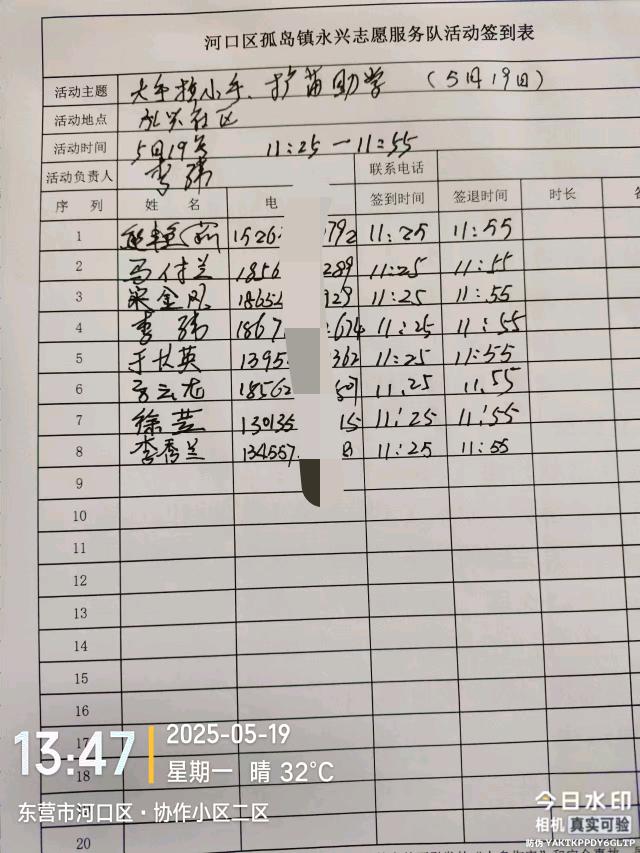 河口区孤岛镇永兴志愿服务队活动签到表
活动主题 大手拉小手、护苗助学 （5月19日）
活动地点 永兴社区
活动时间 5月19号 11:25 — 11:55
活动负责人 李玮 联系电话
序 列 姓 名 电 签到时间 签退时间 时长
1 1526 792 11:25 11:55
2 马付兰 1856 289 11:25 11:55
3 宋金凤 1865 929 11:25 11:55
4 李玮 1867 674 11:25 11:55
5 于扶英 1395 362 11:25 11:55
6 18562 11.25 11.55
7 徐芸 130135 15 11:25 11:55
8 李秀兰 134557 11:25 11:55
9
10
11
12
13
14
15
16
17
18
20
13:47
2025-05-19
星期一 晴 32°C
东营市河口区·协作小区二区
今日水印
相机 真实可验
防伪 YAKTKPPDY6GLTP